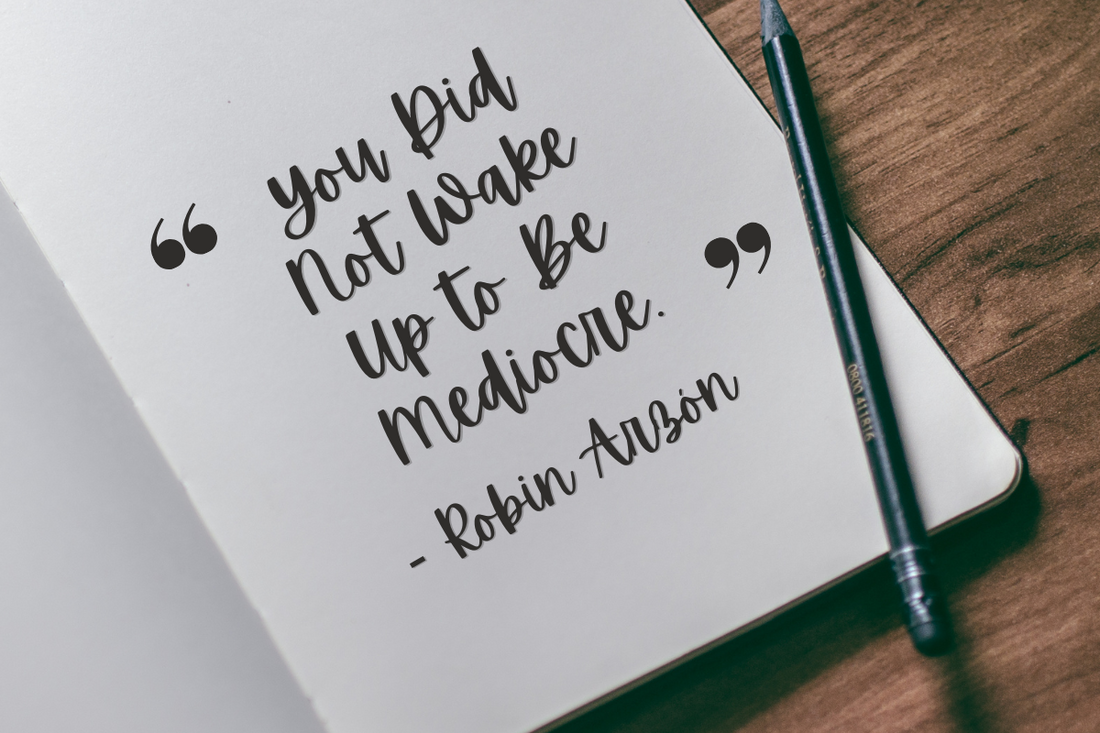 “You Did
Not Wake
Up to Be
Mediocre.”
- Robin Arzón
0800 411816